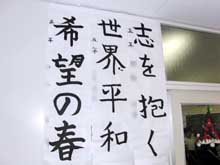 志を抱く
世界平和
希望の春